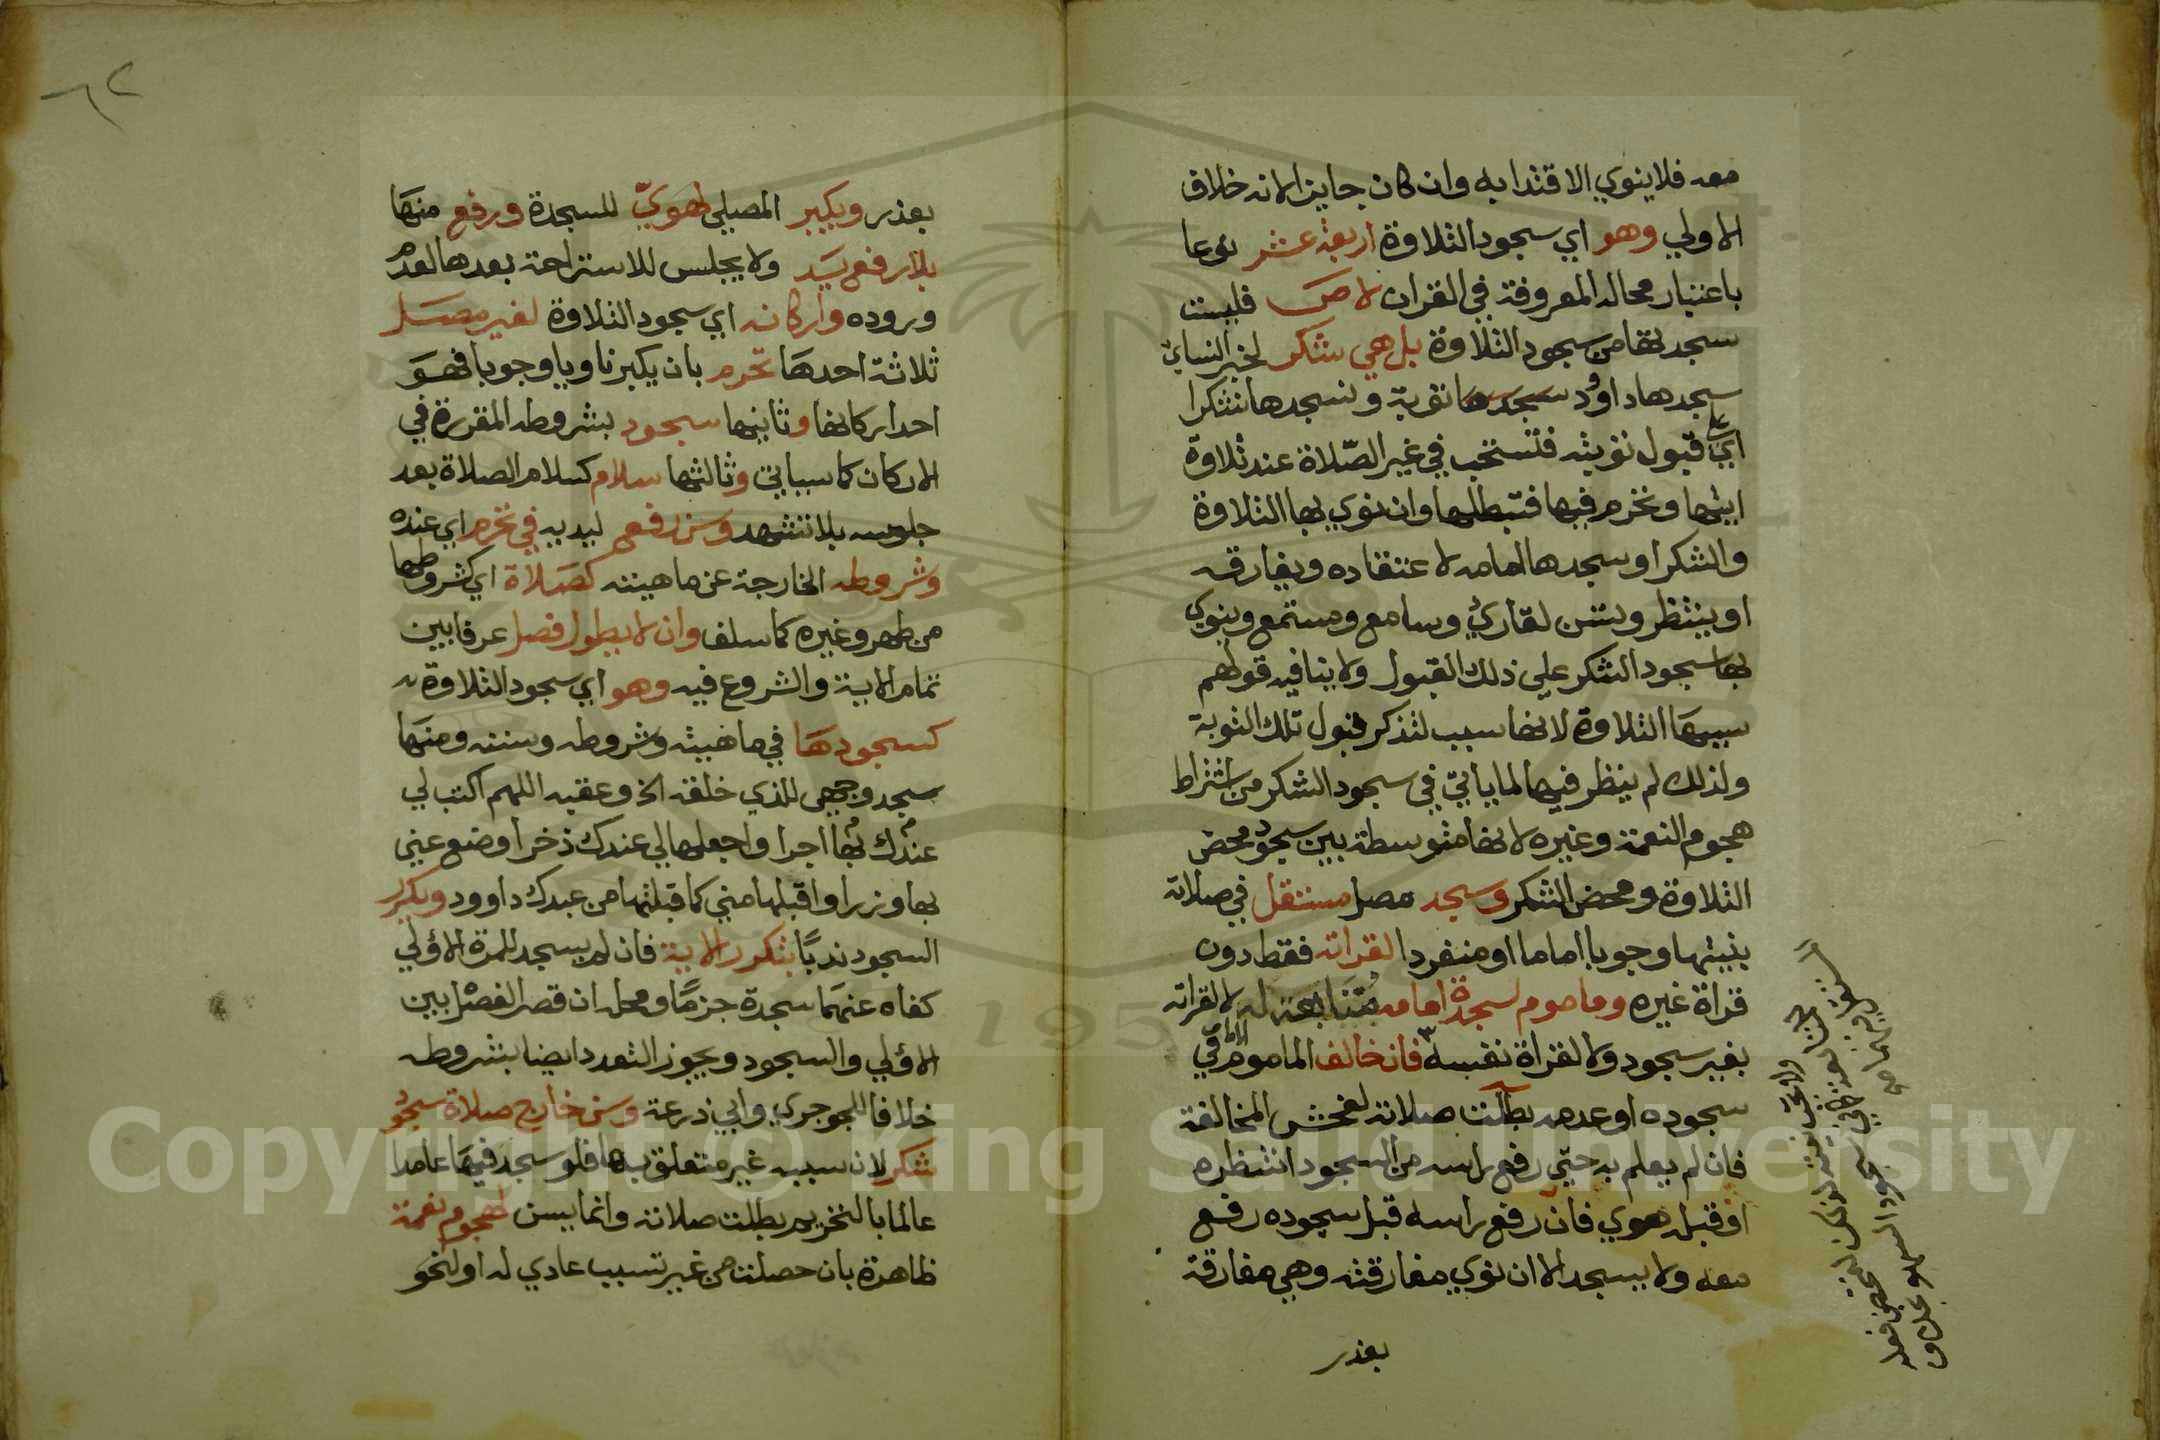 معه فلا ينوي الاقتدا به وان كان جايزا لانه خلاف
الاولي وهو اي سجود التلاوة اربعة عشر نوعا
باعتبار محاله المعروفة في القران لا ص فليست
سجدتها من سجود التلاوة بل هي شكر لخبر النساي
سجدها داوود توبة ونسجدها شكرا
اي علي قبول توبته فتستحب في غير الصّلاة عند تلاوة
ايتها وتحرم فيها فتبطلها وان نوي بها التلاوة
والشكر او سجدها امامه لاعتقاده ويفارقه
او ينتظر ويسن لقارئ وسامع ومستمع وينوي
بها سجود الشكر علي ذلك القبول ولا ينافيه قولهم
سببها التلاوة لانها سبب لتذكر قبول تلك التوبة
ولذلك لم ينظر فيها لما ياتي في سجود الشكر من اشتراط
هجوم النعمة وغيره لانها متوسطة بين سجود محض
التلاوة ومحض الشكر وسجد مصل مستقل في صلاته
بنيتها وجوبا اماما او منفردا لقراته فقط دون
قراة غيره وماموم لسجدة امامه متابعة له لا لقراته
بغير سجود ولا لقراة نفسه فان خالف الماموم الامام في
سجوده او عدمه بطلت صلاته لفحش المخالفة
فان لم يعلم به حتي رفع راسه من السجود انتظره
او قبله هوي فان رفع راسه قبل سجوده رفع
معه ولا يسجد الا ان نوي مفارقته وهي مفارقة
بعذر
٦٢
بعذر ويكبر المصلي لهويّ للسجدة ورفع منها
بلا رفع يد ولا يجلس للاستراحة بعدها لعدم
وروده واركانه اي سجود التلاوة لغير مصل
ثلاثة احدها تحرم بان يكبر ناويا وجوبا فهو
احد اركانها وثانيها سجود بشروطه المقررة في
الاركان كما سياتي وثالثها سلام كسلام الصلاة بعد
جلوسه بلا تشهد وسن رفع ليديه في تحرم اي عنده
وشروطه الخارجة عن ماهيته كصلاة اي كشروطها
من طهر وغيره كما سلف وان لا يطول فصل عرفا بين
تمام الاية والشروع فيه وهو اي سجود التلاوة
كسجودها في ماهيته وشروطه وسننه ومنها
سجد وجهي للذي خلقه الخ وعقبه اللهم اكتب لي
عندك بها اجرا واجعلها لي عندك ذخرا وضع عني
بها وزرا واقبلها مني كما قبلتها من عبدك داوود ويكرر
السجود ندبًا بتكرر الاية فان لم يسجد للمرة الاولي
كفاه عنهما سجدة جزمًا ومحله ان قصر الفصل بين
الاولي والسجود ويجوز التعدد ايضا بشروطه
خلافا للجوجري وابي زرعة وسن خارج صلاة سجود
شكر لان سببه غير متعلق بها فلو سجد فيها عامدا
عالما بالتحريم بطلت صلاته وانما يسن لهجوم نعمة
ظاهرة بان حصلت من غير تسبب عادي له او لنحو